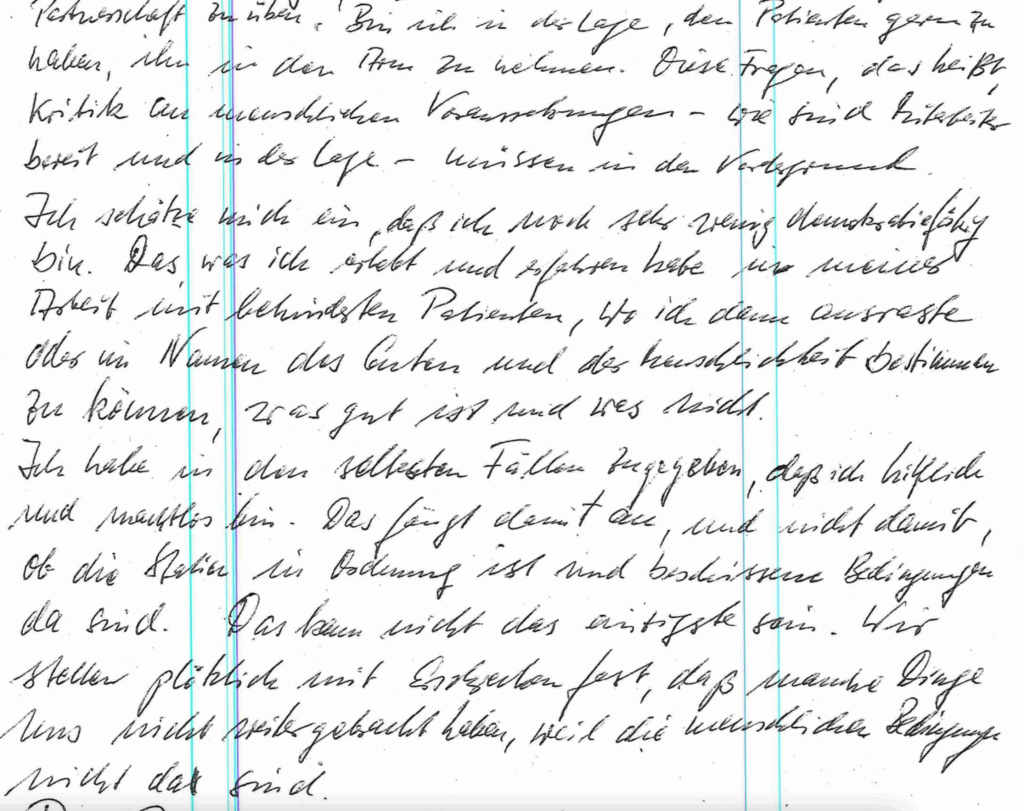 Partnerschaft zu üben. Bin ich in der Lage, den Patienten gern zu
haben, ihn in den Arm zu nehmen. Diese Fragen, das heißt,
Kritik an menschlichen Voraussetzungen – wie sind Mitarbeiter
bereit und in der Lage – müssen in den Vordergrund.
Ich schätze mich ein, daß ich noch sehr wenig demokratiefähig
bin. Das was ich erlebt und erfahren habe in meiner
Arbeit mit behinderten Patienten, wo ich dann ausraste
oder im Namen des Guten und der Menschlichkeit bestimmen
zu können, was gut ist und was nicht.
Ich habe in den seltesten Fällen zugegeben, daß ich hilflich
und machtlos bin. Das fängt damit an, und nicht damit,
ob die Station in Ordnung ist und beschissene Bedingungen
da sind. Das kann nicht das einzigste sein. Wir
stellen plötzlich mit Erschrecken fest, daß manche Dinge
uns nicht weitergebracht haben, weil die menschlichen Bedingunge
nicht da sind.